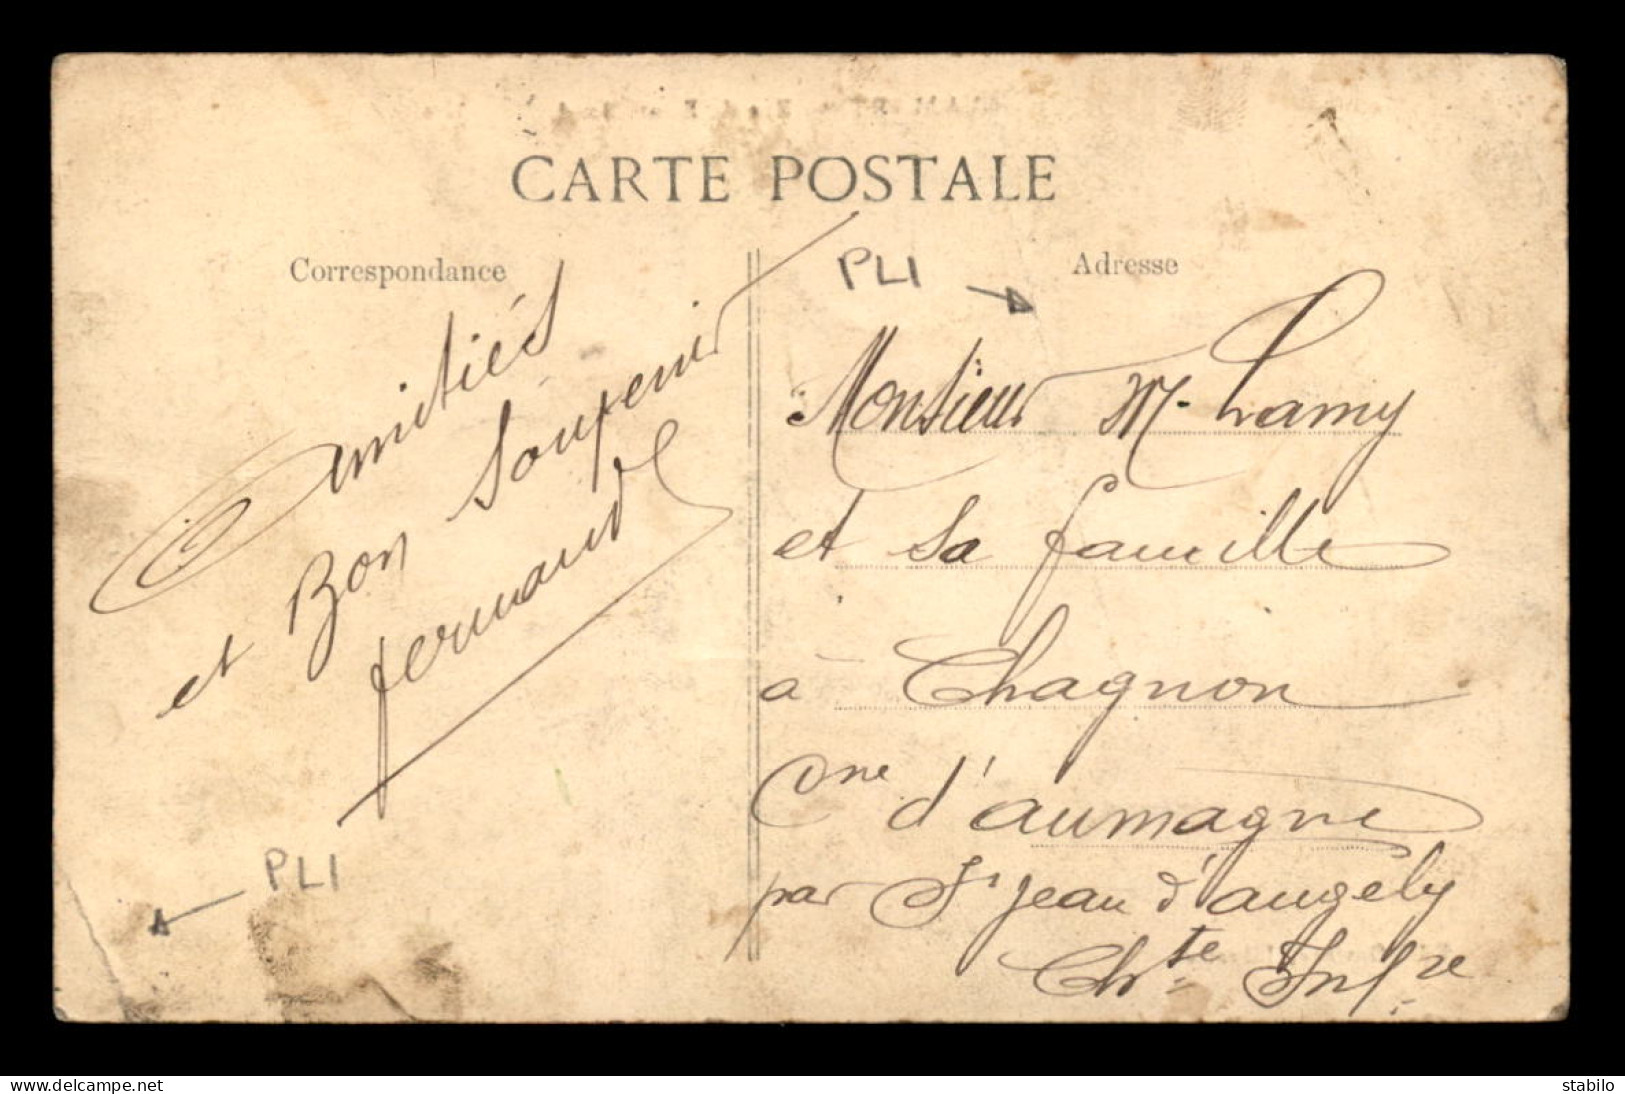 CARTE POSTALE
Correspondance
Amitiés
et Bon Souvenir
fernand
PLI
PLI
Adresse
Monsieur M. Lamy
et sa famille
à Chagnon
Cne d'aumagne
par St Jean d'angély
Chte Infre
delcampe.net
stabilo